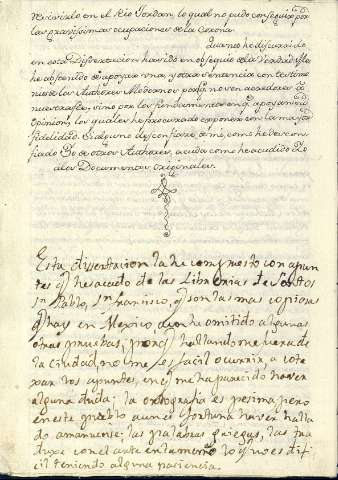 recivirlo en el Rio Jordan, lo qual no pudo conseguir por
las gravissimas ocupaciones de la Corona
Quanto he discurrido
en esta Dissertacion ha sido en obsequio de la Verdad, y
he abstenido de apoyar una, y otra sentencia con testimo
nios de los Authores Modernos por q.e no veo acordarse
nuestra fee, sino por los fundamentos en q.e apoyan su
Opinion, los quales he procurado exponer con la mayor
fidelidad. Si alguno desconfiare de mi, como he descon
fiado Yo de otros Authores, acuda como he acudido Yo
a los Documentos Originales.
Esta dissertacion la he compuesto con apun
tes q.e he sacado de las Librerias de Santos
Sn Pablo, Sn Francisco, q.e son las mas copiosas
q.e hay en Mexico, he omitido algunas
otras pruebas, porq.e hallandome fuera de
la Ciudad, no me es facil ocurrir, a cote
par los apuntes, en q.e me ha parecido haver
alguna duda; la ortografia es pesima, pero
en este pueblo aun es fortuna haver halla
do amanuense; las palabras griegas, las tra
duxe con el
cil teniendo alguna paciencia.